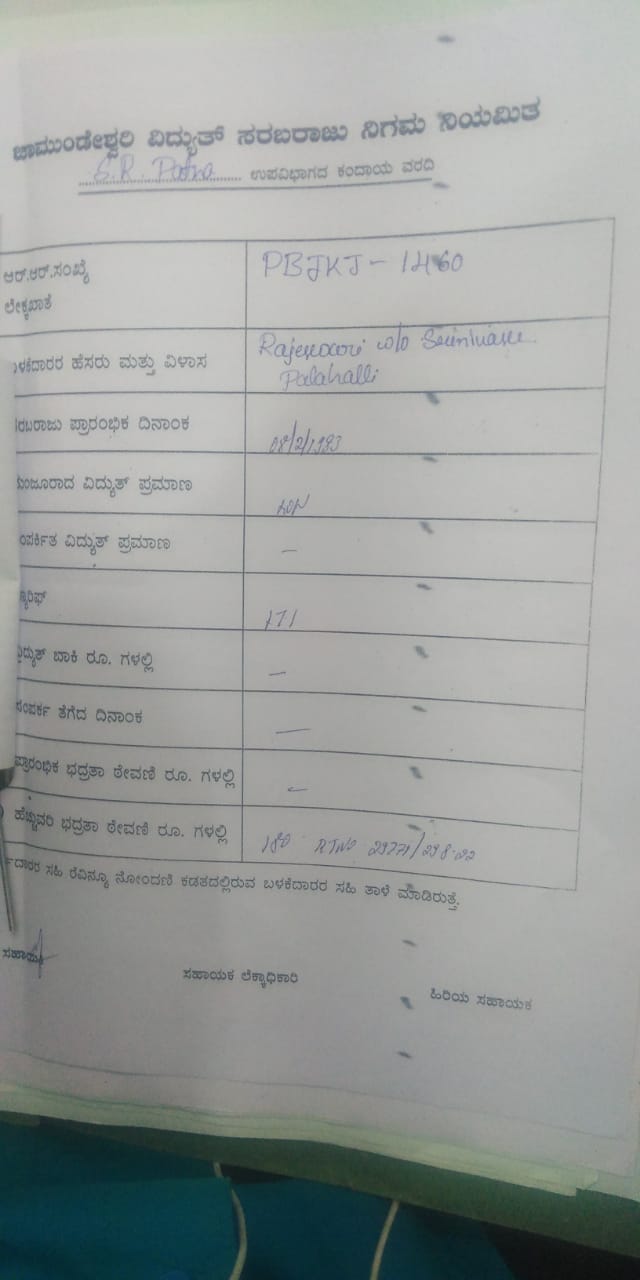 ಚಾಮುಂಡೇಶ್ವರಿ ವಿದ್ಯುತ್ ಸರಬರಾಜು ನಿಗಮ ನಿಯಮಿತ
S.R. Patna ಉಪವಿಭಾಗದ ಕಂದಾಯ ವರದಿ
ಆರ್.ಆರ್.ಸಂಖ್ಯೆ PBJKJ - 1460
ಲೆಕ್ಕಖಾತೆ
ಳಕೆದಾರರ ಹೆಸರು ಮತ್ತು ವಿಳಾಸ Rajeswari w/o
Palahalli
ರಬರಾಜು ಪ್ರಾರಂಭಿಕ ದಿನಾಂಕ 08/2/1993
ಮಂಜೂರಾದ ವಿದ್ಯುತ್ ಪ್ರಮಾಣ
ಂಪರ್ಕಿತ ವಿದ್ಯುತ್ ಪ್ರಮಾಣ –
್ಯಾರಿಫ್
ವಿದ್ಯುತ್ ಬಾಕಿ ರೂ. ಗಳಲ್ಲಿ –
ಸಂಪರ್ಕ ತೆಗೆದ ದಿನಾಂಕ –
ಪ್ರಾರಂಭಿಕ ಭದ್ರತಾ ಠೇವಣಿ ರೂ. ಗಳಲ್ಲಿ –
ಹೆಚ್ಚುವರಿ ಭದ್ರತಾ ಠೇವಣಿ ರೂ. ಗಳಲ್ಲಿ 180
ದಾರರ ಸಹಿ ರೆವಿನ್ಯೂ ನೋಂದಣಿ ಕಡತದಲ್ಲಿರುವ ಬಳಕೆದಾರರ ಸಹಿ ತಾಳೆ ಮಾಡಿರುತ್ತೆ.
ಸಹಾಯಕ ಸಹಾಯಕ ಲೆಕ್ಕಾಧಿಕಾರಿ ಹಿರಿಯ ಸಹಾಯಕ